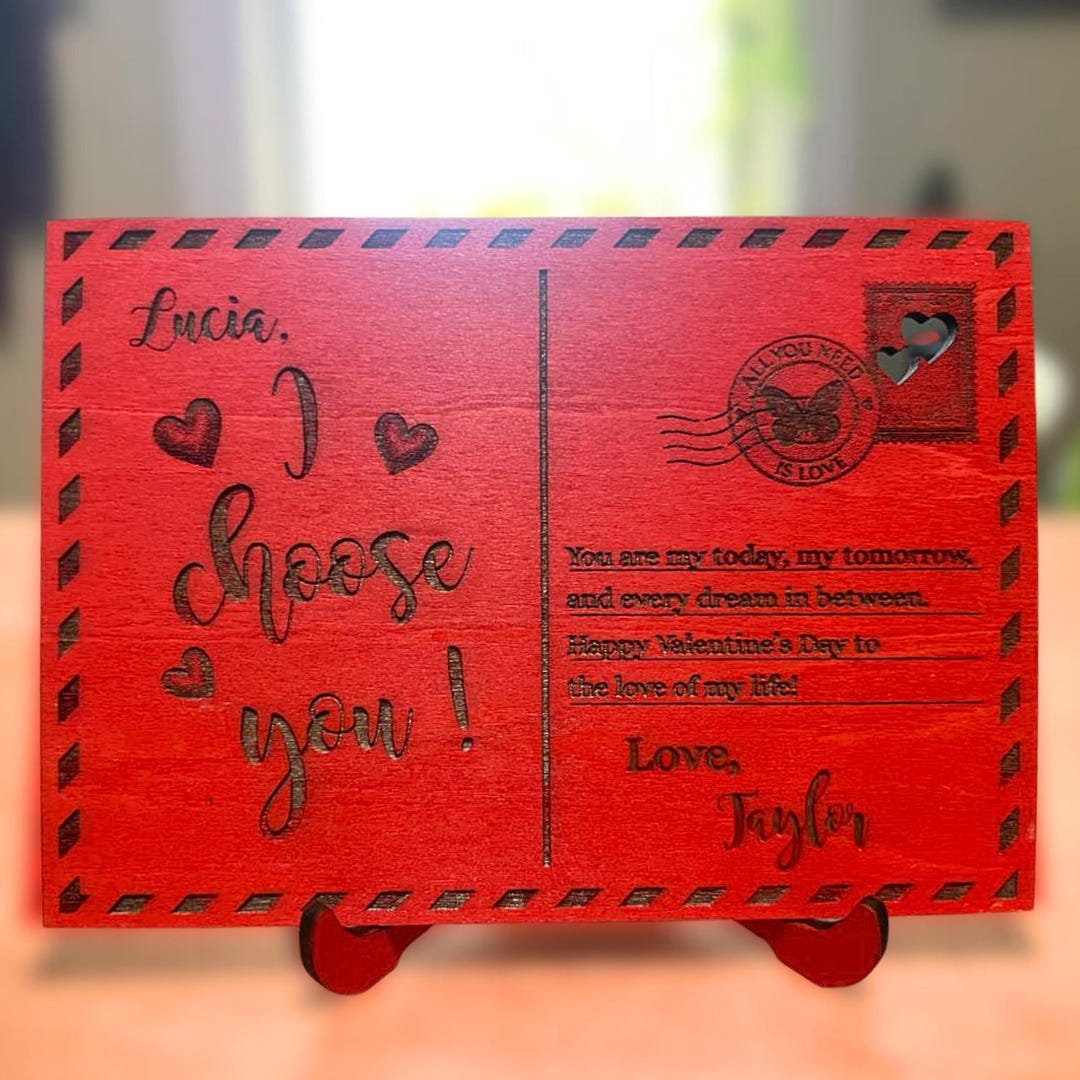 Lucia,
I
choose
you!
ALL YOU NEED
IS LOVE
You are my today, my tomorrow,
and every dream in between.
Happy Valentine's Day to
the love of my life!
Love,
Taylor